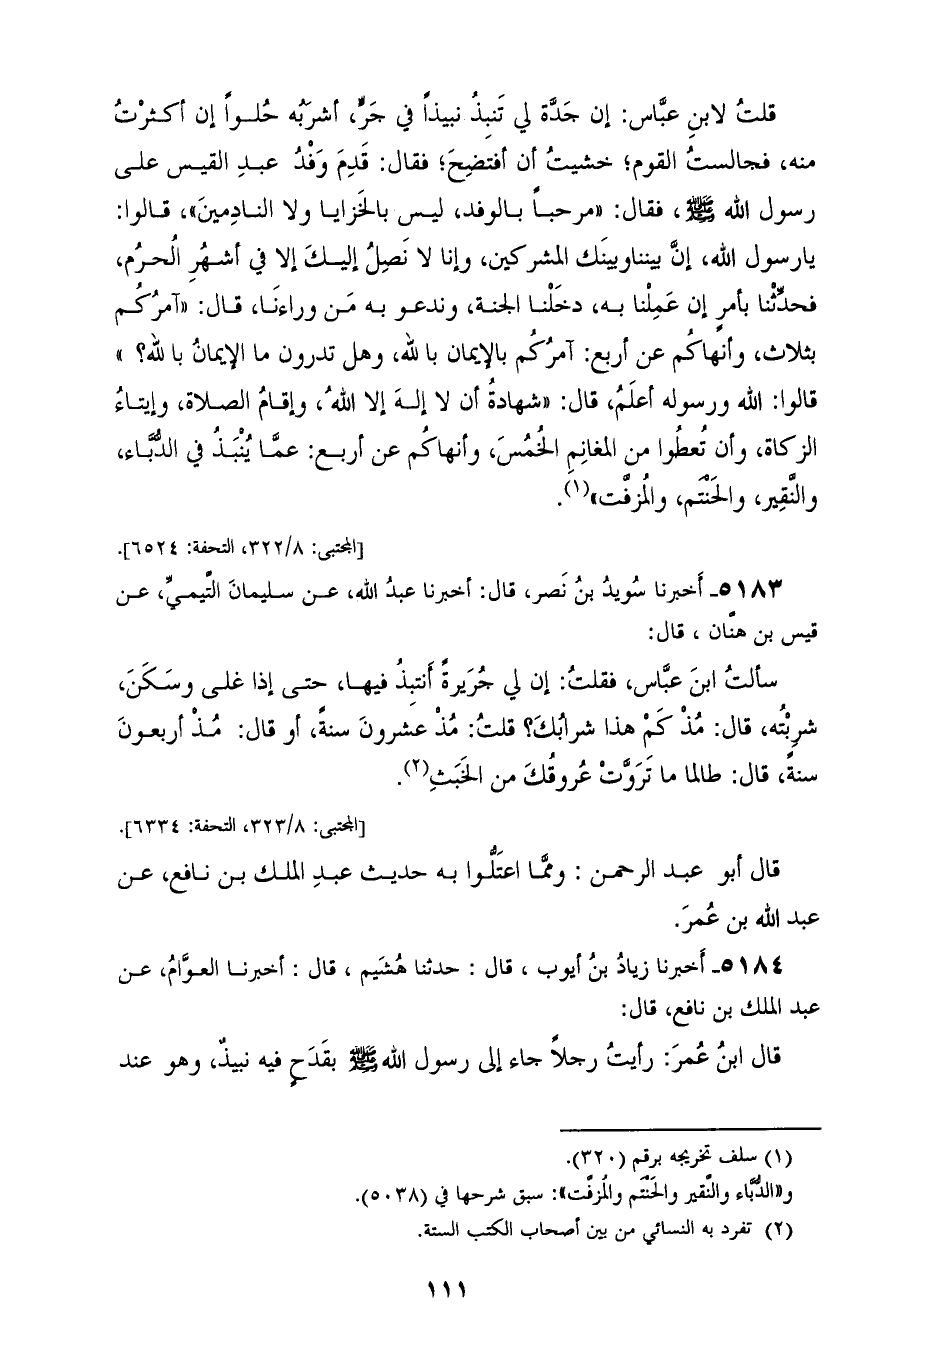 قلتُ لابنِ عبَّاس: إن جَدَّة لي تَنبِذُ نبيذاً في جَرٍّ، أشرَبُه حُلـواً إن أكـثرْتُ
منه، فجالستُ القوم؛ خشيتُ أن أفتضِحَ؛ فقال: قَدِمَ وَفْدُ عبـدِ القيـس علـى
رسول الله ﷺ، فقال: «مرحبـاً بـالوفد، ليـس بـالخَزايـا ولا النـادِمينَ»، قـالوا:
يارسول الله، إنَّ بينناوبينَك المشركين، وإنا لا نَصِلُ إليـكَ إلا في أشهُرِ الُحرُم،
فحدِّثْنا بأمرٍ إن عَمِلْنا بـه، دخَلْنـا الجنـة، وندعـو بـه مَـن وراءنَـا، قـال: «آمرُكُـم
بثلاث، وأنهاكُم عن أربع: آمرُكُم بالإيمان با لله، وهل تدرون ما الإيمانُ با لله؟ »
قالوا: الله ورسوله أعلَمُ، قال: «شهادةُ أن لا إلـهَ إلا اللهُ، وإقـامُ الصـلاة، وإيتـاءُ
الزكاة، وأن تُعطُوا من المغانِمِ الخُمُسَ، وأنهاكُم عن أربـع: عمَّـا يُنْبَـذُ في الدُّبَّـاء،
والنَّقِير، والحَنْتَم، والُمزفَّت»(١).
[المجتبى: ٣٢٢/٨، التحفة: ٦٥٢٤].
٥١٨٣ـ أَخبرنا سُويدُ بنُ نَصر، قال: أخبرنا عبدُ الله، عـن سـليمانَ التَّيمـيِّ، عـن
قيس بن هنَّان ، قال:
سألتُ ابنَ عبَّاس، فقلتُ: إن لي جُرَيرةً أَنتبِذُ فيهـا، حتـى إذا غلـى وسـكَنَ،
شرِبْتُه، قال: مُذْ كَمْ هذا شرابُكَ؟ قلتُ: مُذْ عشرونَ سنةً، أو قال: مُـذْ أربعـونَ
سنةً، قال: طالما ما تَرَوَّتْ عُروقُكَ من الخَبَثِ(٢).
[المجتبى: ٣٢٣/٨، التحفة: ٦٣٣٤].
قال أبو عبـد الرحمـن : وممَّـا اعتَلُّـوا بـه حديـث عبـدِ الملـك بـن نـافع، عـن
عبد الله بن عُمرَ.
٥١٨٤ـ أَخبرنا زيادُ بنُ أيوب ، قال : حدثنا هُشَيم ، قال : أخبرنـا العـوَّامُ، عـن
عبد الملك بن نافع، قال:
قال ابنُ عُمرَ: رأيتُ رجلاً جاء إلى رسول الله ﷺ بقَدَحٍ فيه نبيذٌ، وهو عند
(١) سلف تخريجه برقم (٣٢٠).
و«الدُّبَّاء والنَّقير والحَنْتَم والُمزفَّت»: سبق شرحها في (٥٠٣٨).
(٢) تفرد به النسائي من بين أصحاب الكتب الستة.
١١١